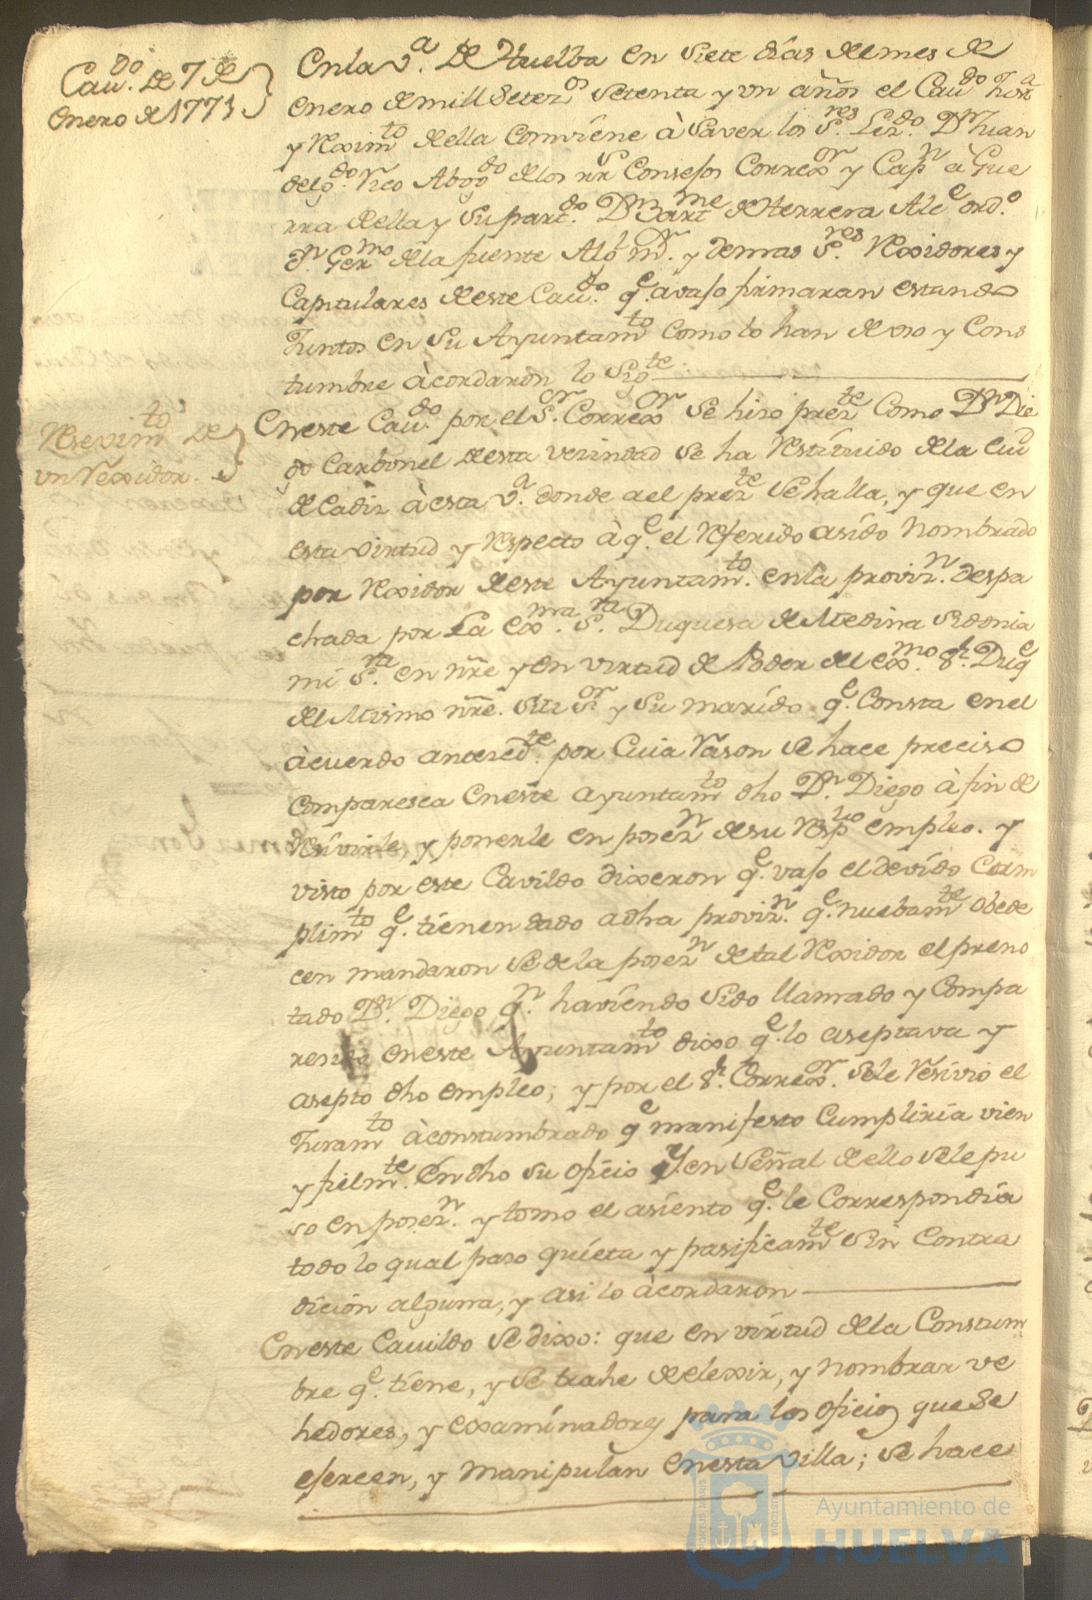 Cau.do de 7 de
Enero de 1771
En la v.a de Huelba en siete dias del mes de
enero de mill setez.os setenta y un años el Cau.do Just.a
y Reximto de ella conviene à saver los S.res Liz.do D.n Juan
delg.do Rico Abog.do de los rr.s Consejos Correx.or y Cap.n à Gue
rra de ella y su part.do D.n Bart.me de Herrera Alc.e ord.o
d.n Ger.mo de la fuente Alg.l m.r y demas S.res Rexidores y
Capitulares de este Cau.do q.e avajo firmaran estando
Juntos en su Ayuntam.to como lo han de uso y cons
tumbre àcordaron lo sig.te
Resevim.to de
un Rexidor
En este Cau.do por el S.or Correx.or se hiso prez.te como D.n Die
go Carbonel de esta vezindad se ha restituido de la Ciu.d
de Cadiz à esta v.a donde a el prez.te se halla, y que en
esta virtud y respecto à q.e el referido asido nombrado
por Rexidor de este Ayuntam.to en la proviz.n despa
chada por La Ex.ma S.ra Duquesa de Medina Sidonia
mi S.ra en nr̃e y en virtud de Poder del Ex.mo S.r Duq.e
del mismo nr̃e. mi S.or y su marido q.e consta en el
àcuerdo anteced.te por cuia rason se hace preciso
comparesca en este ayuntam.to dho D.n Diego à fin de
resivirle y ponerle en posez.n de su resp.vo empleo. y
visto por este Cavildo dixeron q.e vajo el devido cum
plim.to q.e tienen dado a dha proviz.n q.e nuebam.te obede
cen mandaron se de la posez.n de tal Rexidor el preno
tado D.n Diego q.n haviendo sido llamado y compa
resido en este Ayuntam.to dixo q.e lo aseptava y
asepto dho empleo; y por el S.r Correx.or se le resivio el
Juram.to àconstumbrado q.e manifesto cumpliria vien
y fielm.te En dho su oficio y en señal de ello se le pu
so en posez.n y tomo el asiento q.e le correspondia
todo lo qual paso quieta y pasificam.te sin contra
dicion alguna, y asi lo àcordaron
En este Cauildo se dixo: que en virtud de la constum
bre q.e tiene, y se trahe de elexir, y nombrar ve
hedores, y examinadores para los oficios que se
ejercen, y manipulan en esta villa; se hace
Ayuntamiento de
HUELVA